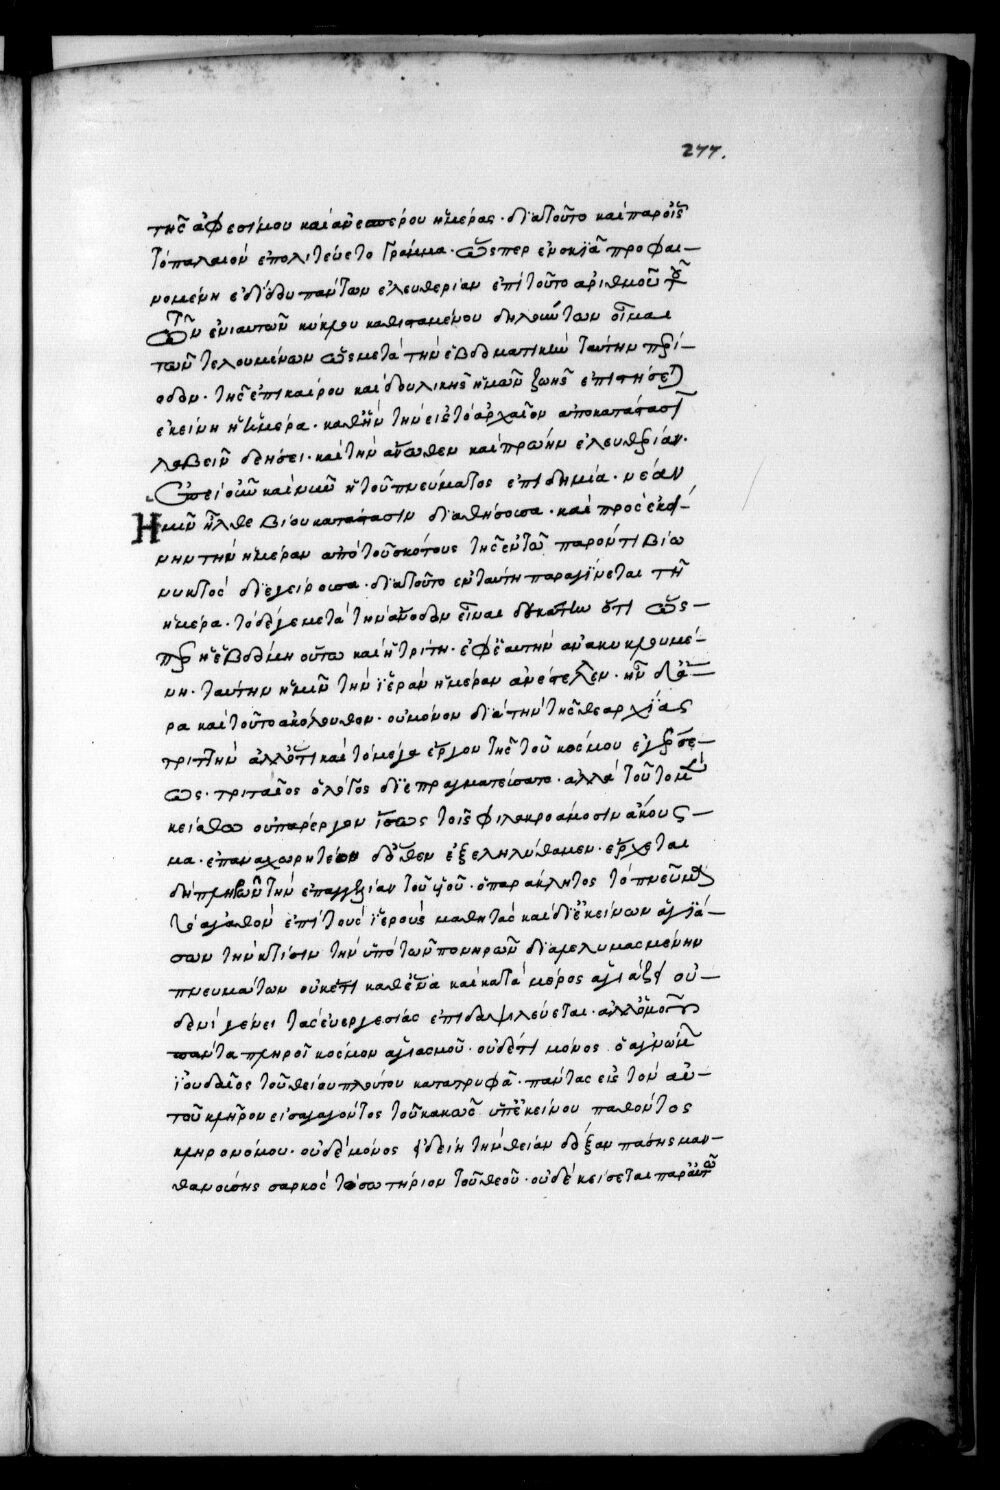 277.
τῆς ἀφεσίμου καὶ ἀνεσπέρου ἡμέρας· διὰ τοῦτο καὶ παρ' οἷς
τὸ παλαιὸν ἐπολιτεύετο γράμμα· ὥσπερ ἐν σκιᾷ προφαι–
νομένη ἐδίδου πάντων ἐλευθερίαν ἐπὶ τοῦτο ἀριθμοῦ τ
ῶν ἐνιαυτῶν κύκλου καθισταμένου δηλούντων οἶμαι
τῶν τελουμένων ὡς μετὰ τὴν ἑβδοματικὴν ταύτην περί–
οδον· τῆς ἐπικαίρου καὶ δουλικῆς ἡμῶν ζωῆς ἐπιστήσετ
ἐκείνη ἡ ἡμέρα· καθ' ἣν τὴν εἰς τὸ ἀρχαῖον ἀποκατάστασιν
λαβεῖν δεήσει· καὶ τὴν ἄνωθεν καὶ πρώην ἐλευθερίαν·
ἐπεὶ οὖν καὶ νῦν ἡ τοῦ πνεύματος ἐπιδημία· νέαν
Ημῖν ἦλθε βίου κατάστασιν διαθήσουσα· καὶ πρὸς ἐκεί–
νην τὴν ἡμέραν ἀπὸ τοῦ σκότους τῆς ἐν τῷ παρόντι βίῳ
νυκτὸς διεγείρουσα· διὰ τοῦτο ἐν ταύτῃ παραγίνεται τῇ
ἡμέρα· τὸ δέ γε μετὰ τὴν ἄνοδον εἶναι δεκάτην ὅτι ὥς–
περ ἡ ἑβδόμη οὕτω καὶ ἡ τρίτη· ἐφ' ἑαυτὴν ἀνακυκλουμέ–
νη· ταύτην ἡμῖν τὴν ἱερὰν ἡμέραν ἀνέστειλεν· ἦν δ' ἄ–
ρα καὶ τοῦτο ἀκόλουθον· οὐ μόνον διὰ τὴν τῆς θεαρχίας
τριττὴν ἀλλ' ὅτι καὶ τὸ μέγα ἔργον τῆς τοῦ κόσμου ἐγέρσε–
ως· τριταῖος ὁ λόγος διεπραγματεύσατο· ἀλλὰ τοῦτο μὲν
κείσθω οὐ πάρεργον ἴσως τοῖς φιλακροάμοσιν ἄκους–
μα· ἐπαναχωρητέον δ' ὅθεν ἐξεληλύθαμεν· ἔρχεται
δὴ πληρῶν τὴν ἐπαγγελίαν τοῦ υἱοῦ· ὁ παράκλητος τὸ πνεῦμα
τὸ ἀγαθὸν ἐπὶ τοὺς ἱεροὺς μαθητὰς καὶ δι' ἐκείνων ἁγιά–
σων τὴν κτίσιν τὴν ὑπὸ τῶν πονηρῶν διαμελυμασμένην
πνευμάτων οὐκέτι καθ' ἕνα καὶ κατὰ μέρος ἁγιάζει οὐ–
δενὶ γένει τὰς εὐεργεσίας ἐπιδαψιλεύεται· ἀλλ' ὁμοῦ
πάντα πληροῖ κόσμον ἁγιασμοῦ· οὐδέτι μόνος ὁ ἀγνώμων
ἰουδαῖος τοῦ θείου πλούτου κατατρυφᾷ· πάντας εἰς τὸν αὐ–
τοῦ κλῆρον εἰσαγαγόντος τοῦ κακῶς ὑπ' ἐκείνου παθόντος
κληρονόμου· οὐδὲ μόνος ᾔδει τὴν θείαν δόξαν πάσης μαν–
θανούσης σαρκὸς τὸ σωτήριον τοῦ θεοῦ· οὐδὲ κείσεται παρ' αὐτῶ